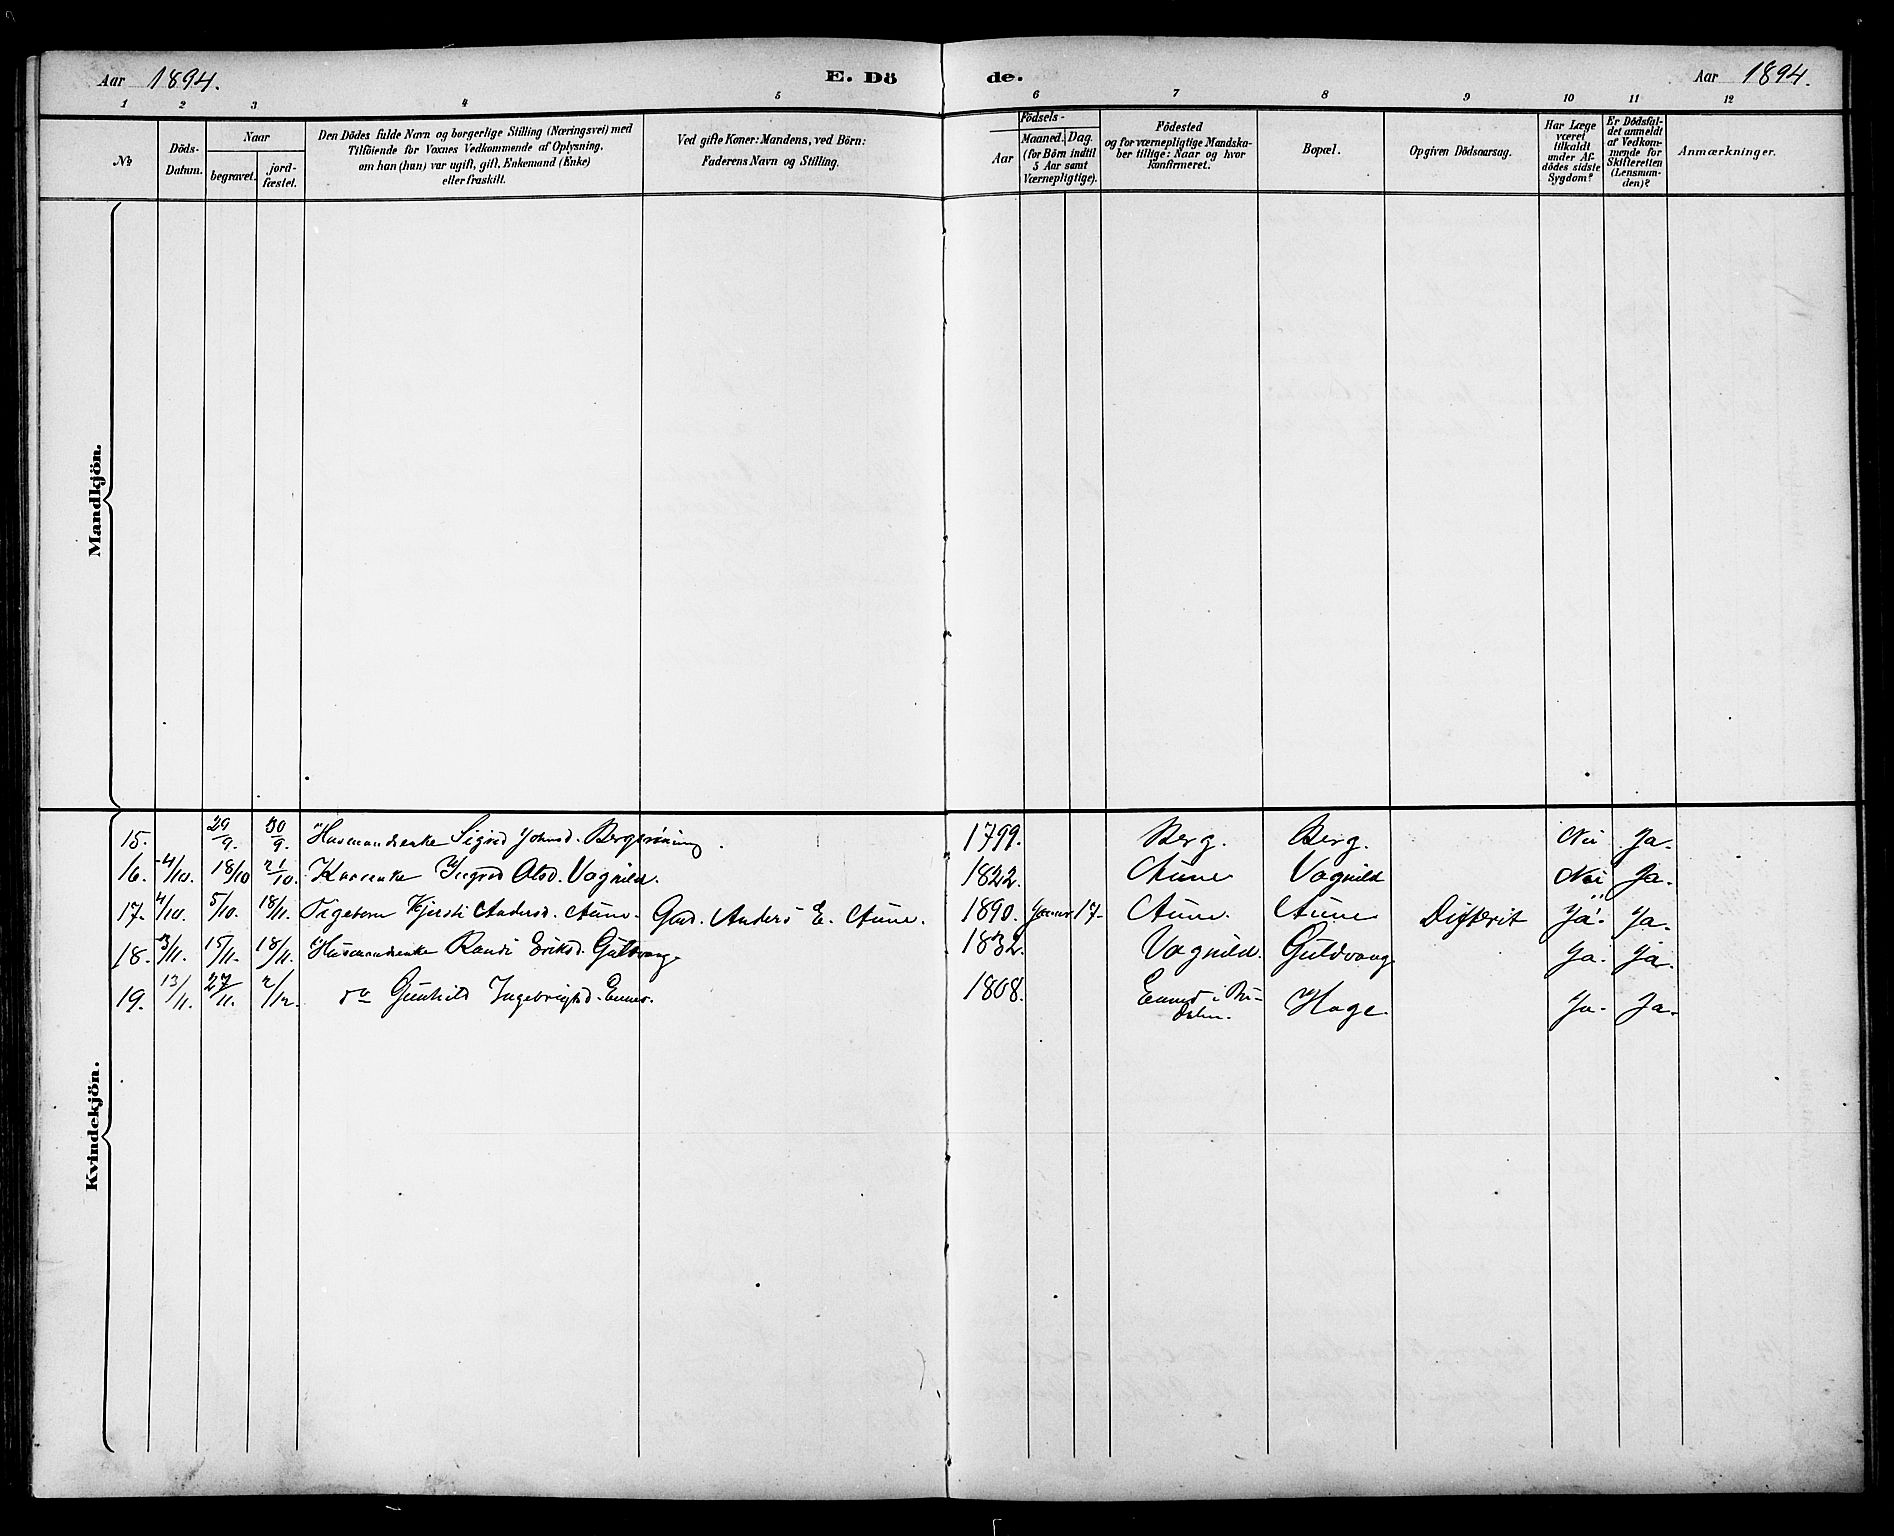 Aar 1894. E. Dö de. Aar 1894.
1 2 3 4 5 6 7 8 9 10 11 12
No
Döds-
Datum.
Naar
begravet.
jord-
fæstet.
Den Dödes fulde Navn og borgerlige Stilling (Næringsvei) med
Tilföiende for Voxnes Vedkommende af Oplysning,
om han (hun) var ugift, gift, Enkemand (Enke)
eller fraskilt.
Ved gifte Koner: Mandens, ved Börn:
Faderens Navn og Stilling.
Födsels-
Aar
Maaned. Dag.
(for Börn indtil
5 Aar samt
Værnepligtige).
Födested
og for værnepligtige Mandska-
ber tillige: Naar og hvor
konfirmeret.
Bopæl.
Opgiven Dödsaarsag.
Har Læge
været
tilkaldt
under Af-
dödes sidste
Sygdom?
Er Dödsfal-
det anmeldt
af Vedkom-
mende for
Skifteretten
(Lensman-
den)?
Anmærkninger.
Mandkjön.
Kvindekjön.
15. 29/9. 30/9. Husmandsenke Sigrid Johnsd. 1799. Berg. Berg. Nei Ja.
16. 4/10. 18/10 21/10. Kaarenke Ingrid Olsd. Vognild. 1822. Aune Vognild Nei Ja.
17. 4/10. 5/10. 18/11. Pigebarn Kjersti Andersd. Aune. Gad. Anders E. Aune. 1890. Januar 17. Aune. Aune Difterit Ja. Ja.
18. 3/11. 15/11. 18/11. Husmandsenke Randi Eriksd. Guldvang. 1832. Vognild. Guldvang Ja. Ja.
19. 13/11. 27/11. 2/12. do Gunhild Ingebrigtsd. 1808. i Bu-
dalen. Hage. Ja. Ja.